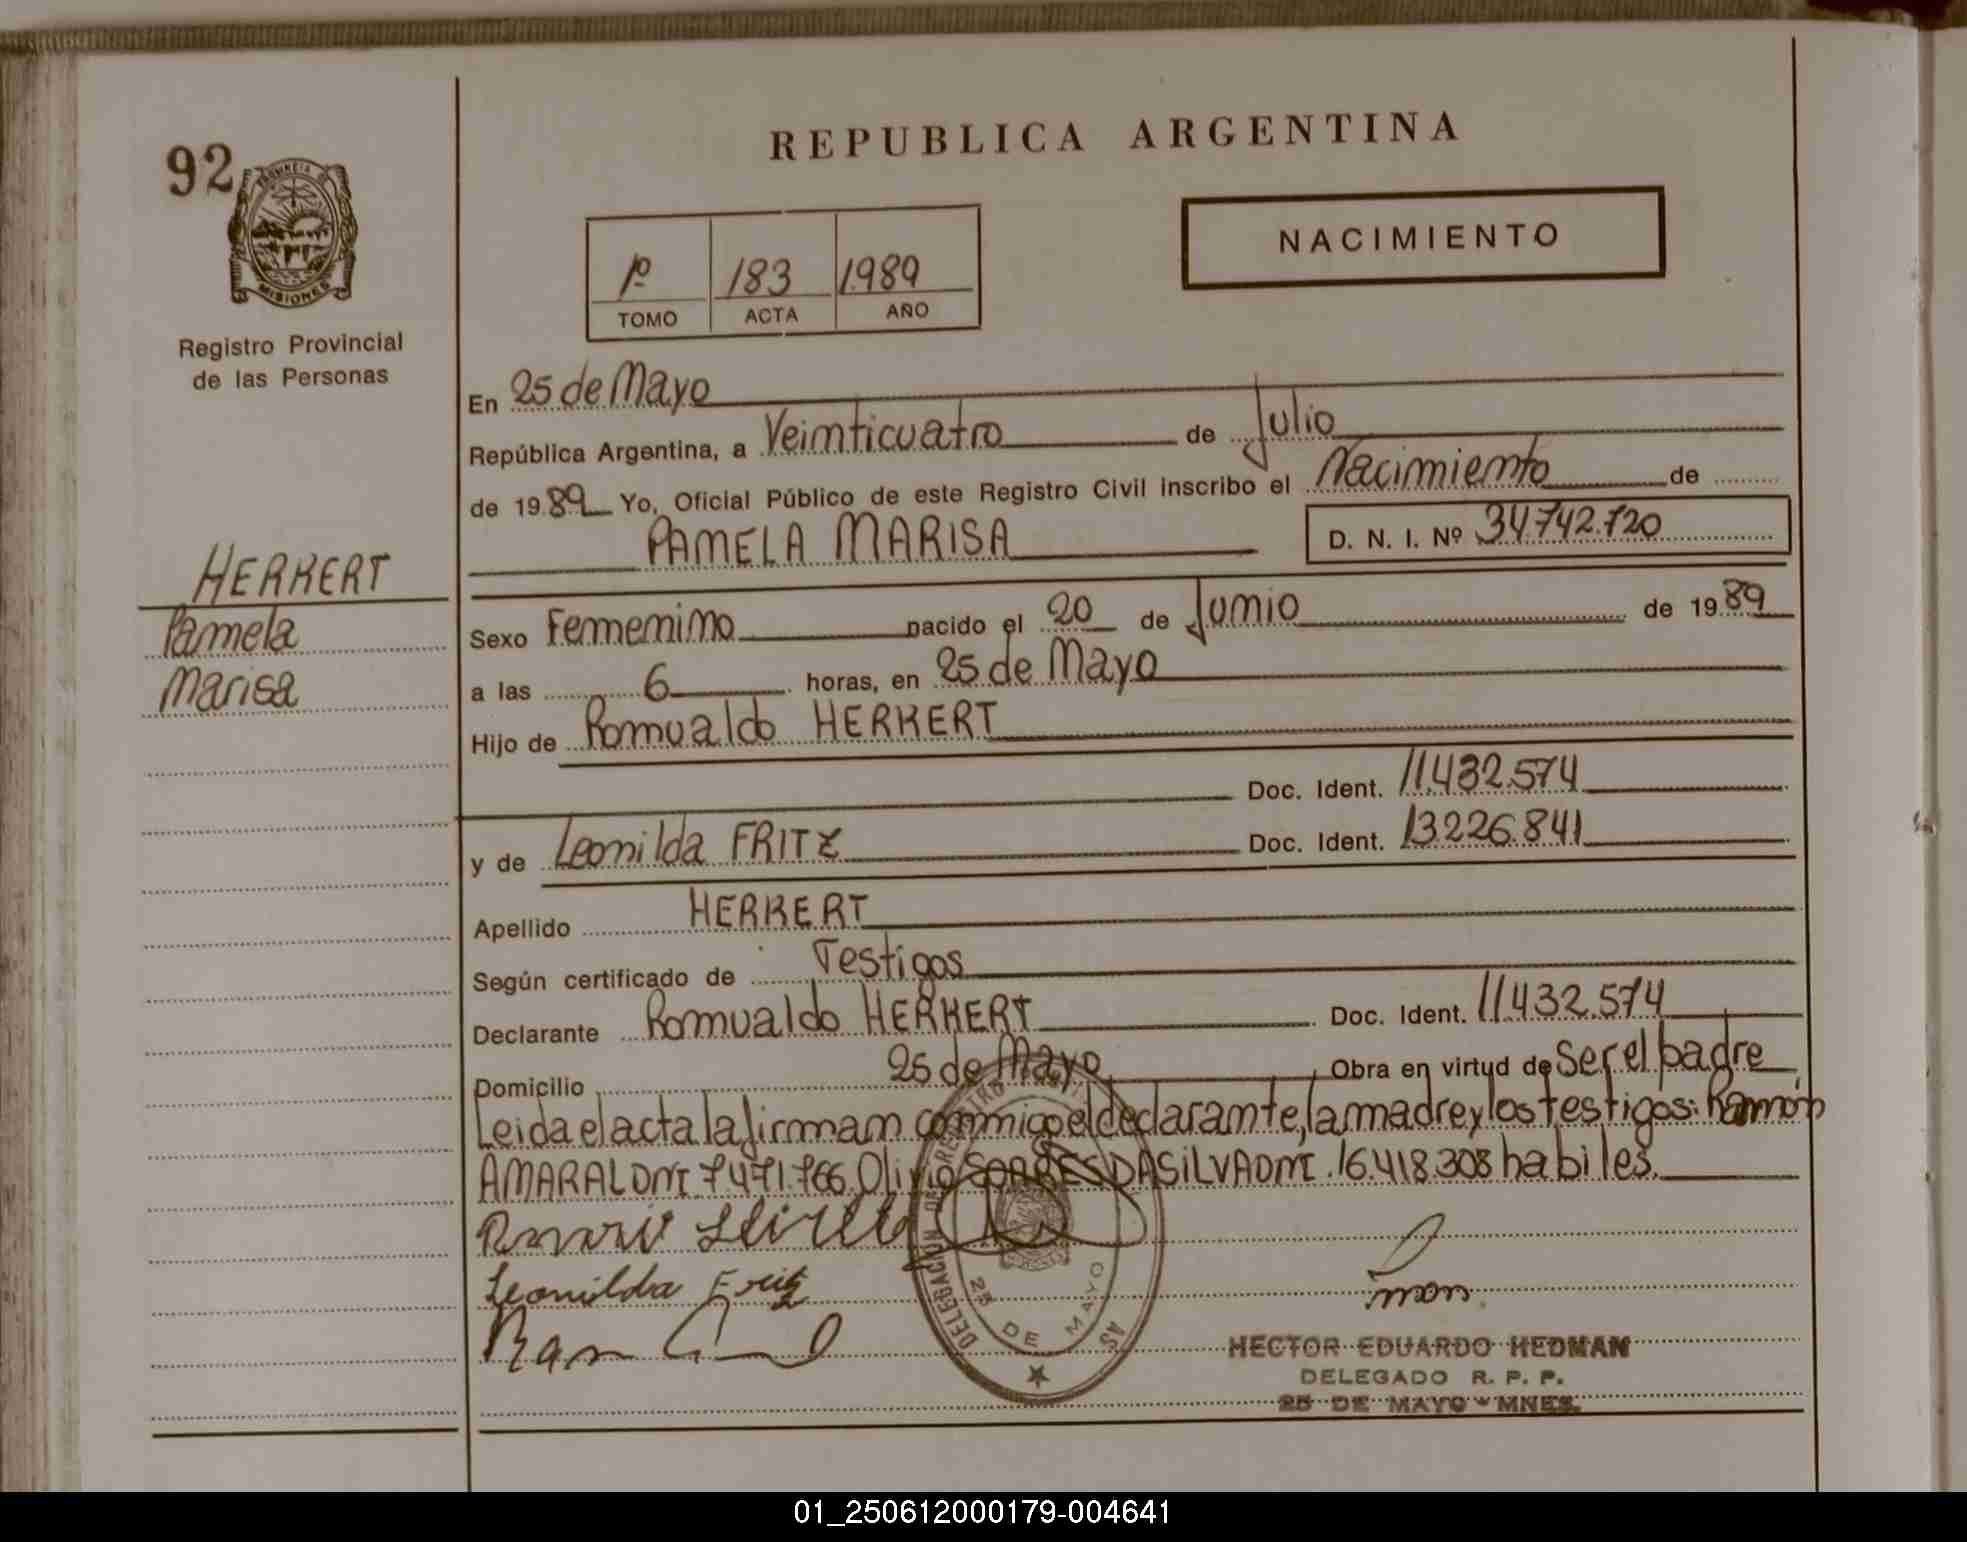 92
PROVINCIA DE
MISIONES
Registro Provincial
de las Personas
HERKERT
Pamela
Marisa
REPUBLICA ARGENTINA
NACIMIENTO
1º 183 1989
TOMO ACTA AÑO
En 25 de Mayo
República Argentina, a Veinticuatro de Julio
de 1989 Yo, Oficial Público de este Registro Civil inscribo el Nacimiento de
PAMELA MARISA D. N. I. Nº 34.742.720
Sexo Femenino nacido el 20 de Junio de 1989
a las 6 horas, en 25 de Mayo
Hijo de Romualdo HERKERT
Doc. Ident. 11.432.574
y de Leonilda FRITZ Doc. Ident. 13.226.841
Apellido HERKERT
Según certificado de Testigos
Declarante Romualdo HERKERT Doc. Ident. 11.432.574
Domicilio 25 de Mayo Obra en virtud de ser el padre
Leida el acta la firman conmigo el declarante, la madre y los testigos: Ramón
AMARAL DNI 7.471.766. Olivio SOARES DA SILVA DNI. 16.418.308 habiles.
Leonilda Fritz
25 DE MAYO
HECTOR EDUARDO HEDMAN
DELEGADO R. P. P.
25 DE MAYO - MNES.
01_250612000179-004641